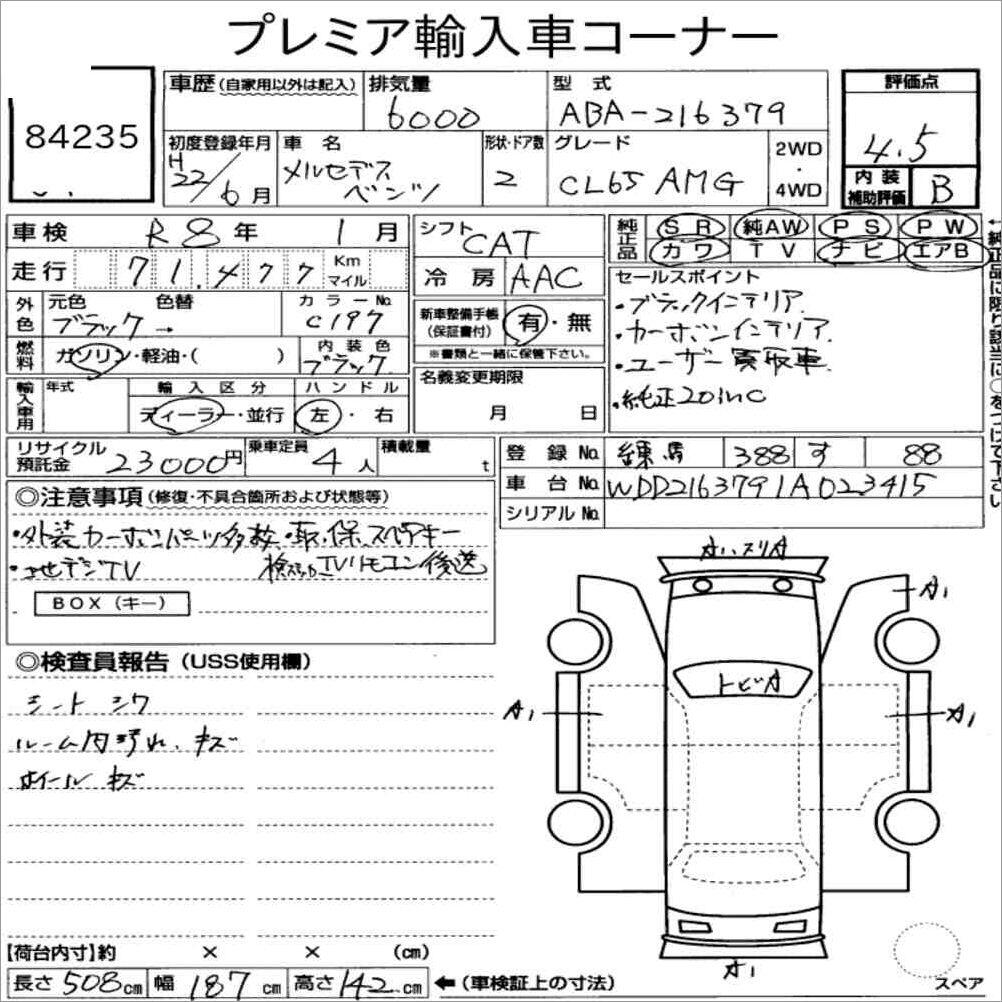 プレミア輸入車コーナー
84235
車歴(自家用以外は記入)
排気量
6000
型式
ABA-216379
評価点
4.5
初度登録年月
H
22/6月
車名
メルセデス
ベンツ
形状・ドア数
2
グレード
CL65 AMG
2WD
・
4WD
内装
補助評価
B
車検 R8年 1月
シフト
CAT
純正品
SR 純AW PS PW
カワ TV ナビ エアB
←純正品に限り該当に○をつけて下さい
走行 71,477 Km
マイル
冷房 AAC
セールスポイント
・ブラックインテリア.
・カーボンインテリア.
・ユーザー買取車.
・純正20inc
外色
元色
ブラック→
色替
カラーNo.
C197
新車整備手帳
(保証書付)
有・無
※書類と一緒に保管下さい。
燃料
ガソリン・軽油・( )
内装色
ブラック
名義変更期限
月 日
輸入車用
年式
輸入区分
ディーラー・並行
ハンドル
左・右
リサイクル
預託金
23000円
乗車定員
4人
積載量
t
登録No. 練馬 388 す 88
車台No. WDD2163791A023415
シリアルNo.
◎注意事項(修復・不具合箇所および状態等)
・外装カーボンパーツ多数・取.保.スペアキー
・地デジTV TVリモコン後送
BOX(キー)
◎検査員報告(USS使用欄)
シートシワ
ルーム内汚れ、キズ
ホイールキズ
AハスリA
A1
トビA
A1
A1
A1
スペア
【荷台内寸】約 × × (cm)
長さ508cm 幅187cm 高さ142cm ←(車検証上の寸法)